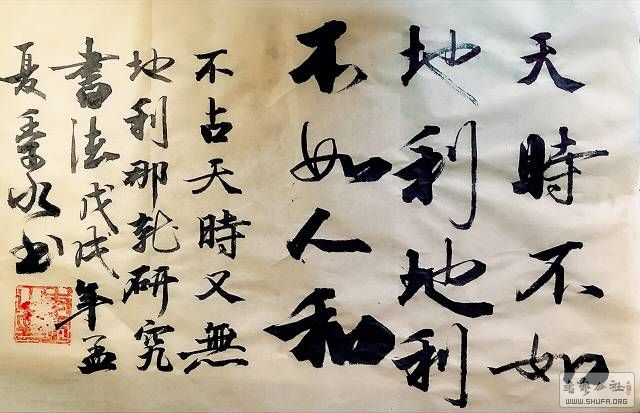 天時不如
地利地利
不如人和
不占天時又無
地利那就研究
書法戊戌年孟
夏季水书
WWW.SHUFA.ORG